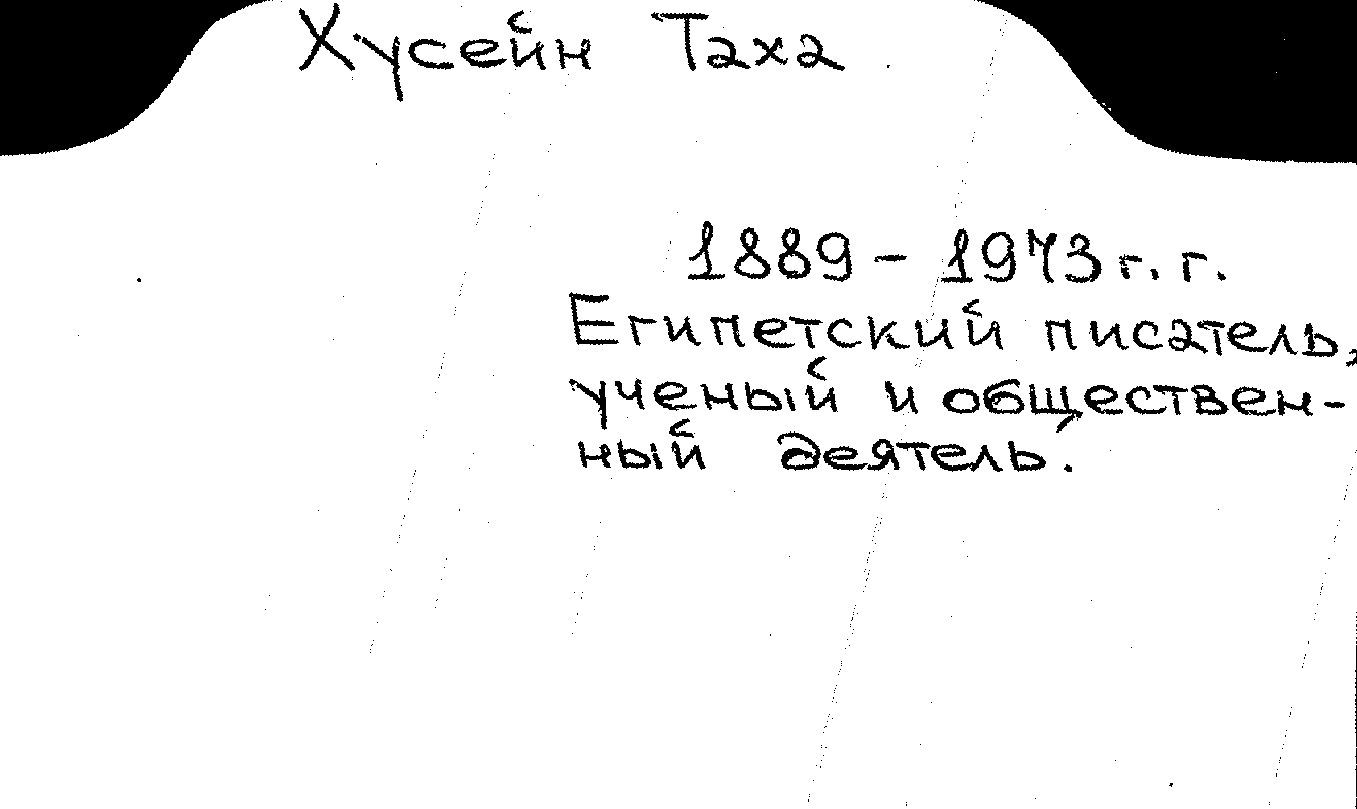 Хусейн Таха
1889 - 1973 г. г.
Египетский писатель,
ученый и обществен-
ный деятель.